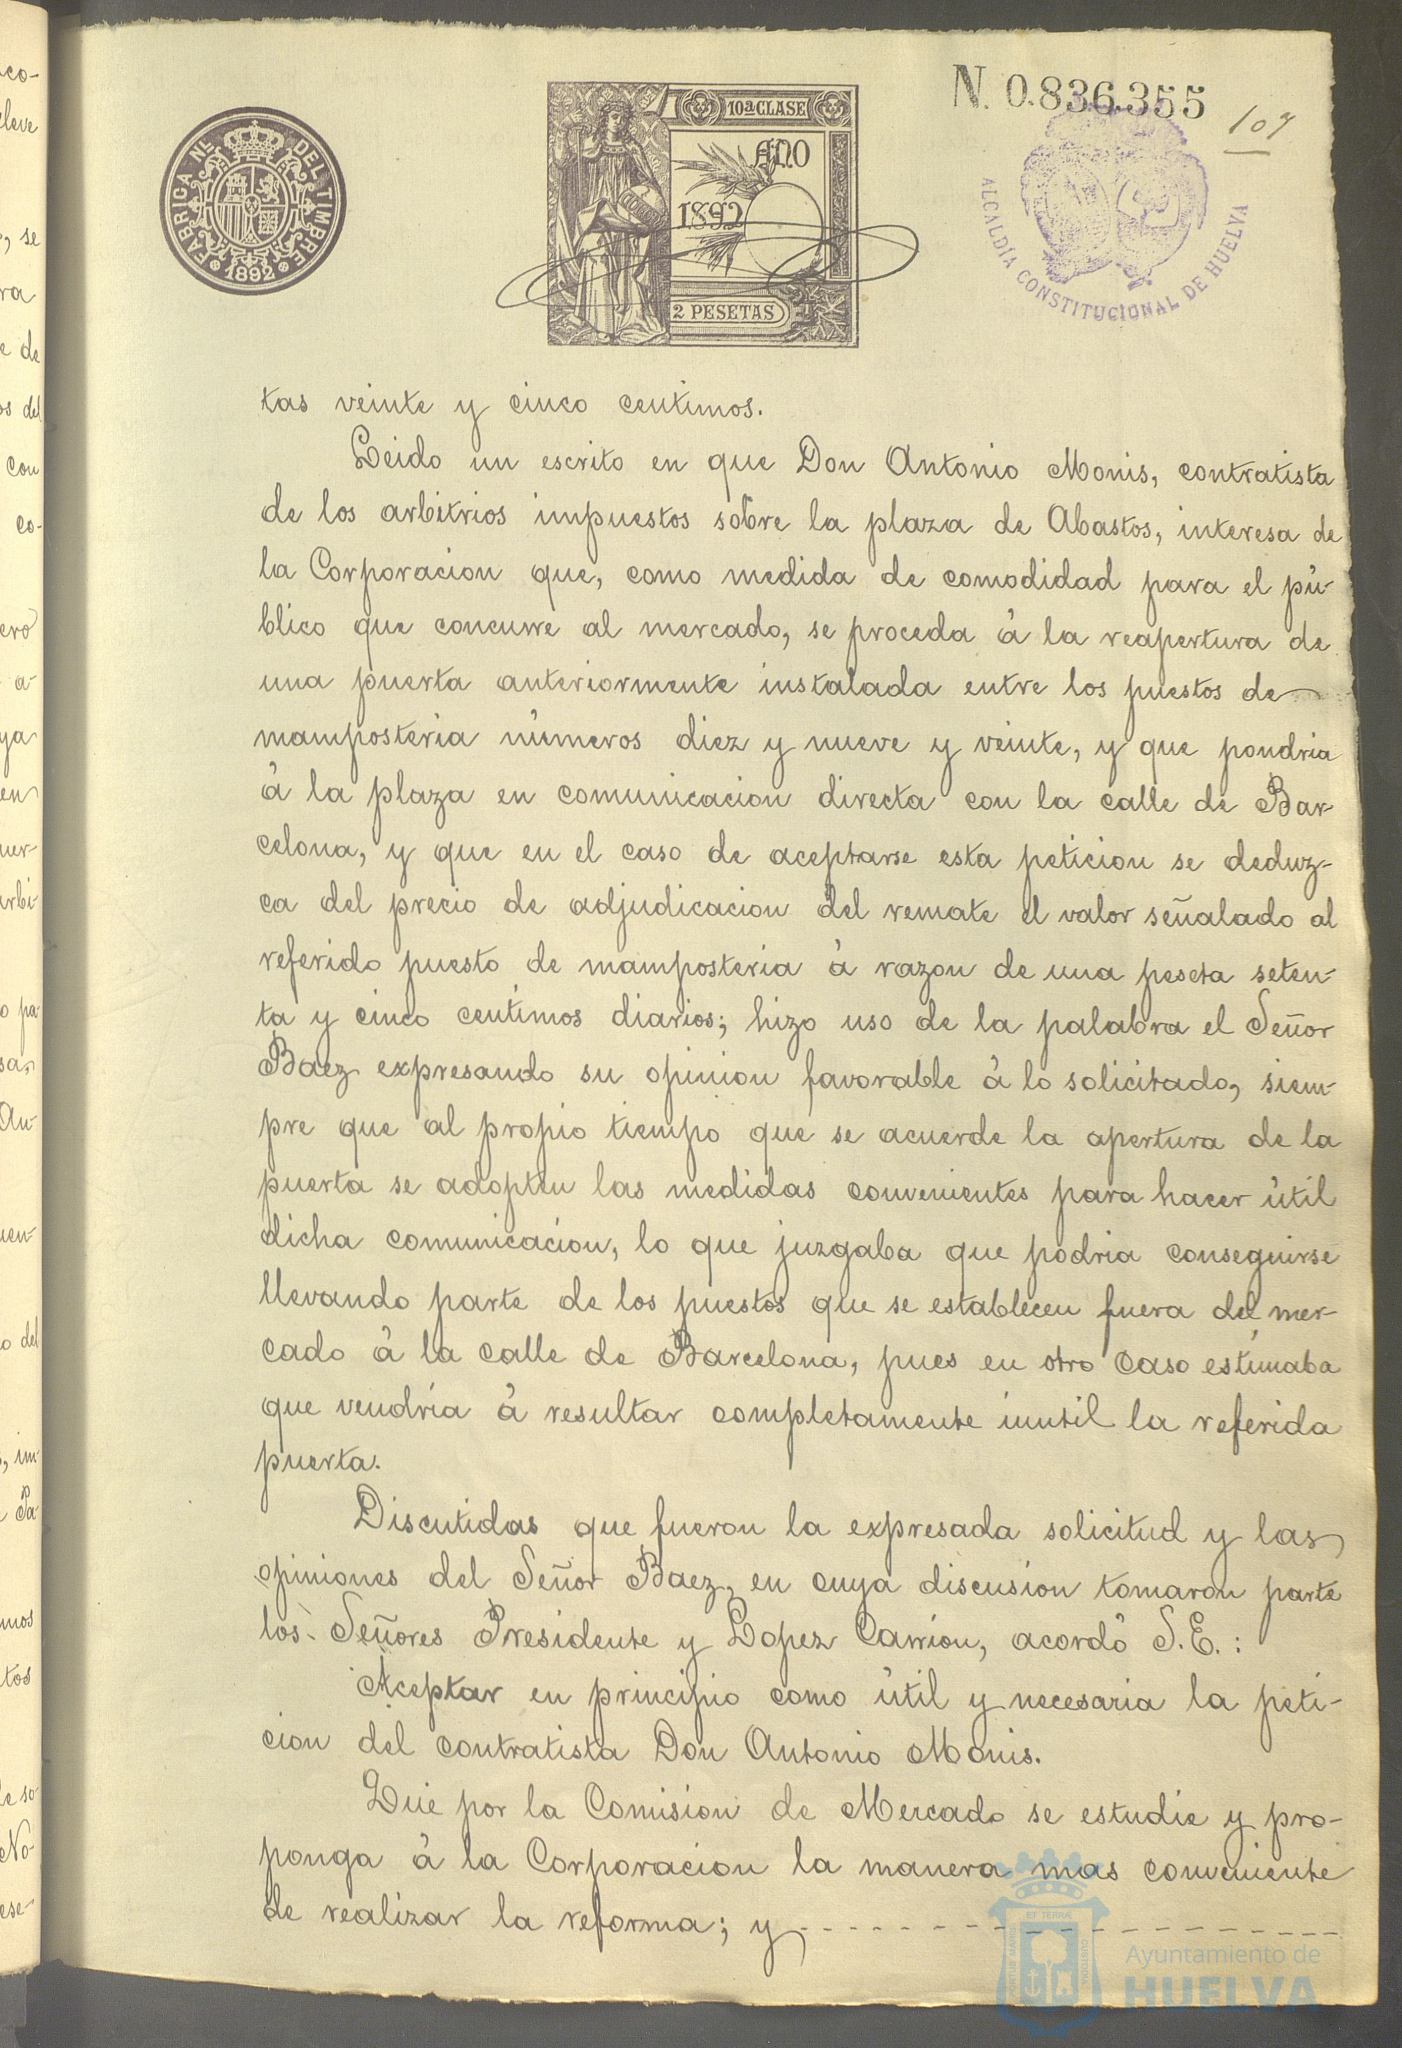 N. 0.836.355
109
FABRICA NL. DEL TIMBRE
1892
10ª CLASE
AÑO
1892
2 PESETAS
ALCALDÍA CONSTITUCIONAL DE HUELVA
tas veinte y cinco centimos.
Leido un escrito en que Don Antonio Monis, contratista
de los arbitrios impuestos sobre la plaza de Abastos, interesa de
la Corporacion que, como medida de comodidad para el pú-
blico que concurre al mercado, se proceda á la reapertura de
una puerta anteriormente instalada entre los puestos de
mamposteria números diez y nueve y veinte, y que pondria
á la plaza en comunicacion directa con la calle de Bar-
celona, y que en el caso de aceptarse esta peticion se deduz-
ca del precio de adjudicacion del remate el valor señalado al
referido puesto de mamposteria á razon de una peseta seten-
ta y cinco centimos diarios; hizo uso de la palabra el Señor
Baez expresando su opinion favorable á lo solicitado, siem-
pre que al propio tiempo que se acuerde la apertura de la
puerta se adopten las medidas convenientes para hacer útil
dicha comunicacion, lo que juzgaba que podria conseguirse
llevando parte de los puestos que se establecen fuera del mer-
cado á la calle de Barcelona, pues en otro caso estimaba
que vendría á resultar completamente inutil la referida
puerta.
Discutidas que fueron la expresada solicitud y las
opiniones del Señor Baez, en cuya discusion tomaron parte
los Señores Presidente y Lopez Carrion, acordó S.E.:
Aceptar en principio como útil y necesaria la peti-
cion del contratista Don Antonio Monis.
Que por la Comision de Mercado se estudie y pro-
ponga á la Corporacion la manera mas conveniente
de realizar la reforma; y
Ayuntamiento de
HUELVA